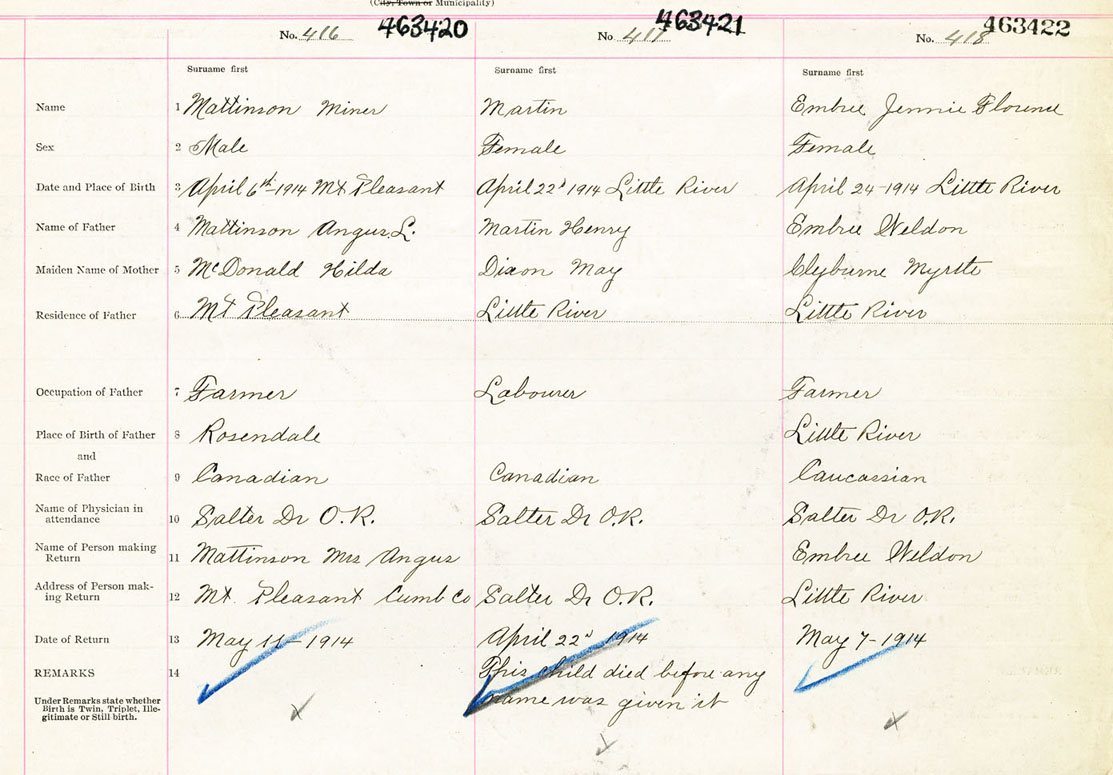 (City, Town or Municipality)
No. 416 463420 No. 417 463421 No. 418 463422
Surname first Surname first Surname first
Name 1 Mattinson Miner Martin Embree Jennie Florence
Sex 2 Male Female Female
Date and Place of Birth 3 April 6th-1914 Mt Pleasant April 22d 1914 Little River April 24-1914 Little River
Name of Father 4 Mattinson Angus L. Martin Henry Embree Weldon
Maiden Name of Mother 5 McDonald Hilda Dixon May Clyburne Myrtle
Residence of Father 6 Mt Pleasant Little River Little River
Occupation of Father 7 Farmer Labourer Farmer
Place of Birth of Father 8 Rosendale Little River
and
Race of Father 9 Canadian Canadian Caucassian
Name of Physician in
attendance 10 Salter Dr O.R. Salter Dr O.R. Salter Dr O.R.
Name of Person making
Return 11 Mattinson Mrs Angus Embree Weldon
Address of Person mak-
ing Return 12 Mt. Pleasant Cumb Co Salter Dr O.R. Little River
Date of Return 13 May 11-1914 April 22d 1914 May 7-1914
REMARKS 14 This child died before any
name was given it
Under Remarks state whether
Birth is Twin, Triplet, Ille-
gitimate or Still birth.